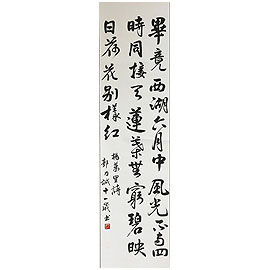 畢竟西湖六月中風光不与四
時同接天蓮葉無窮碧映
日荷花别樣红
楊萬里詩
十一歲书